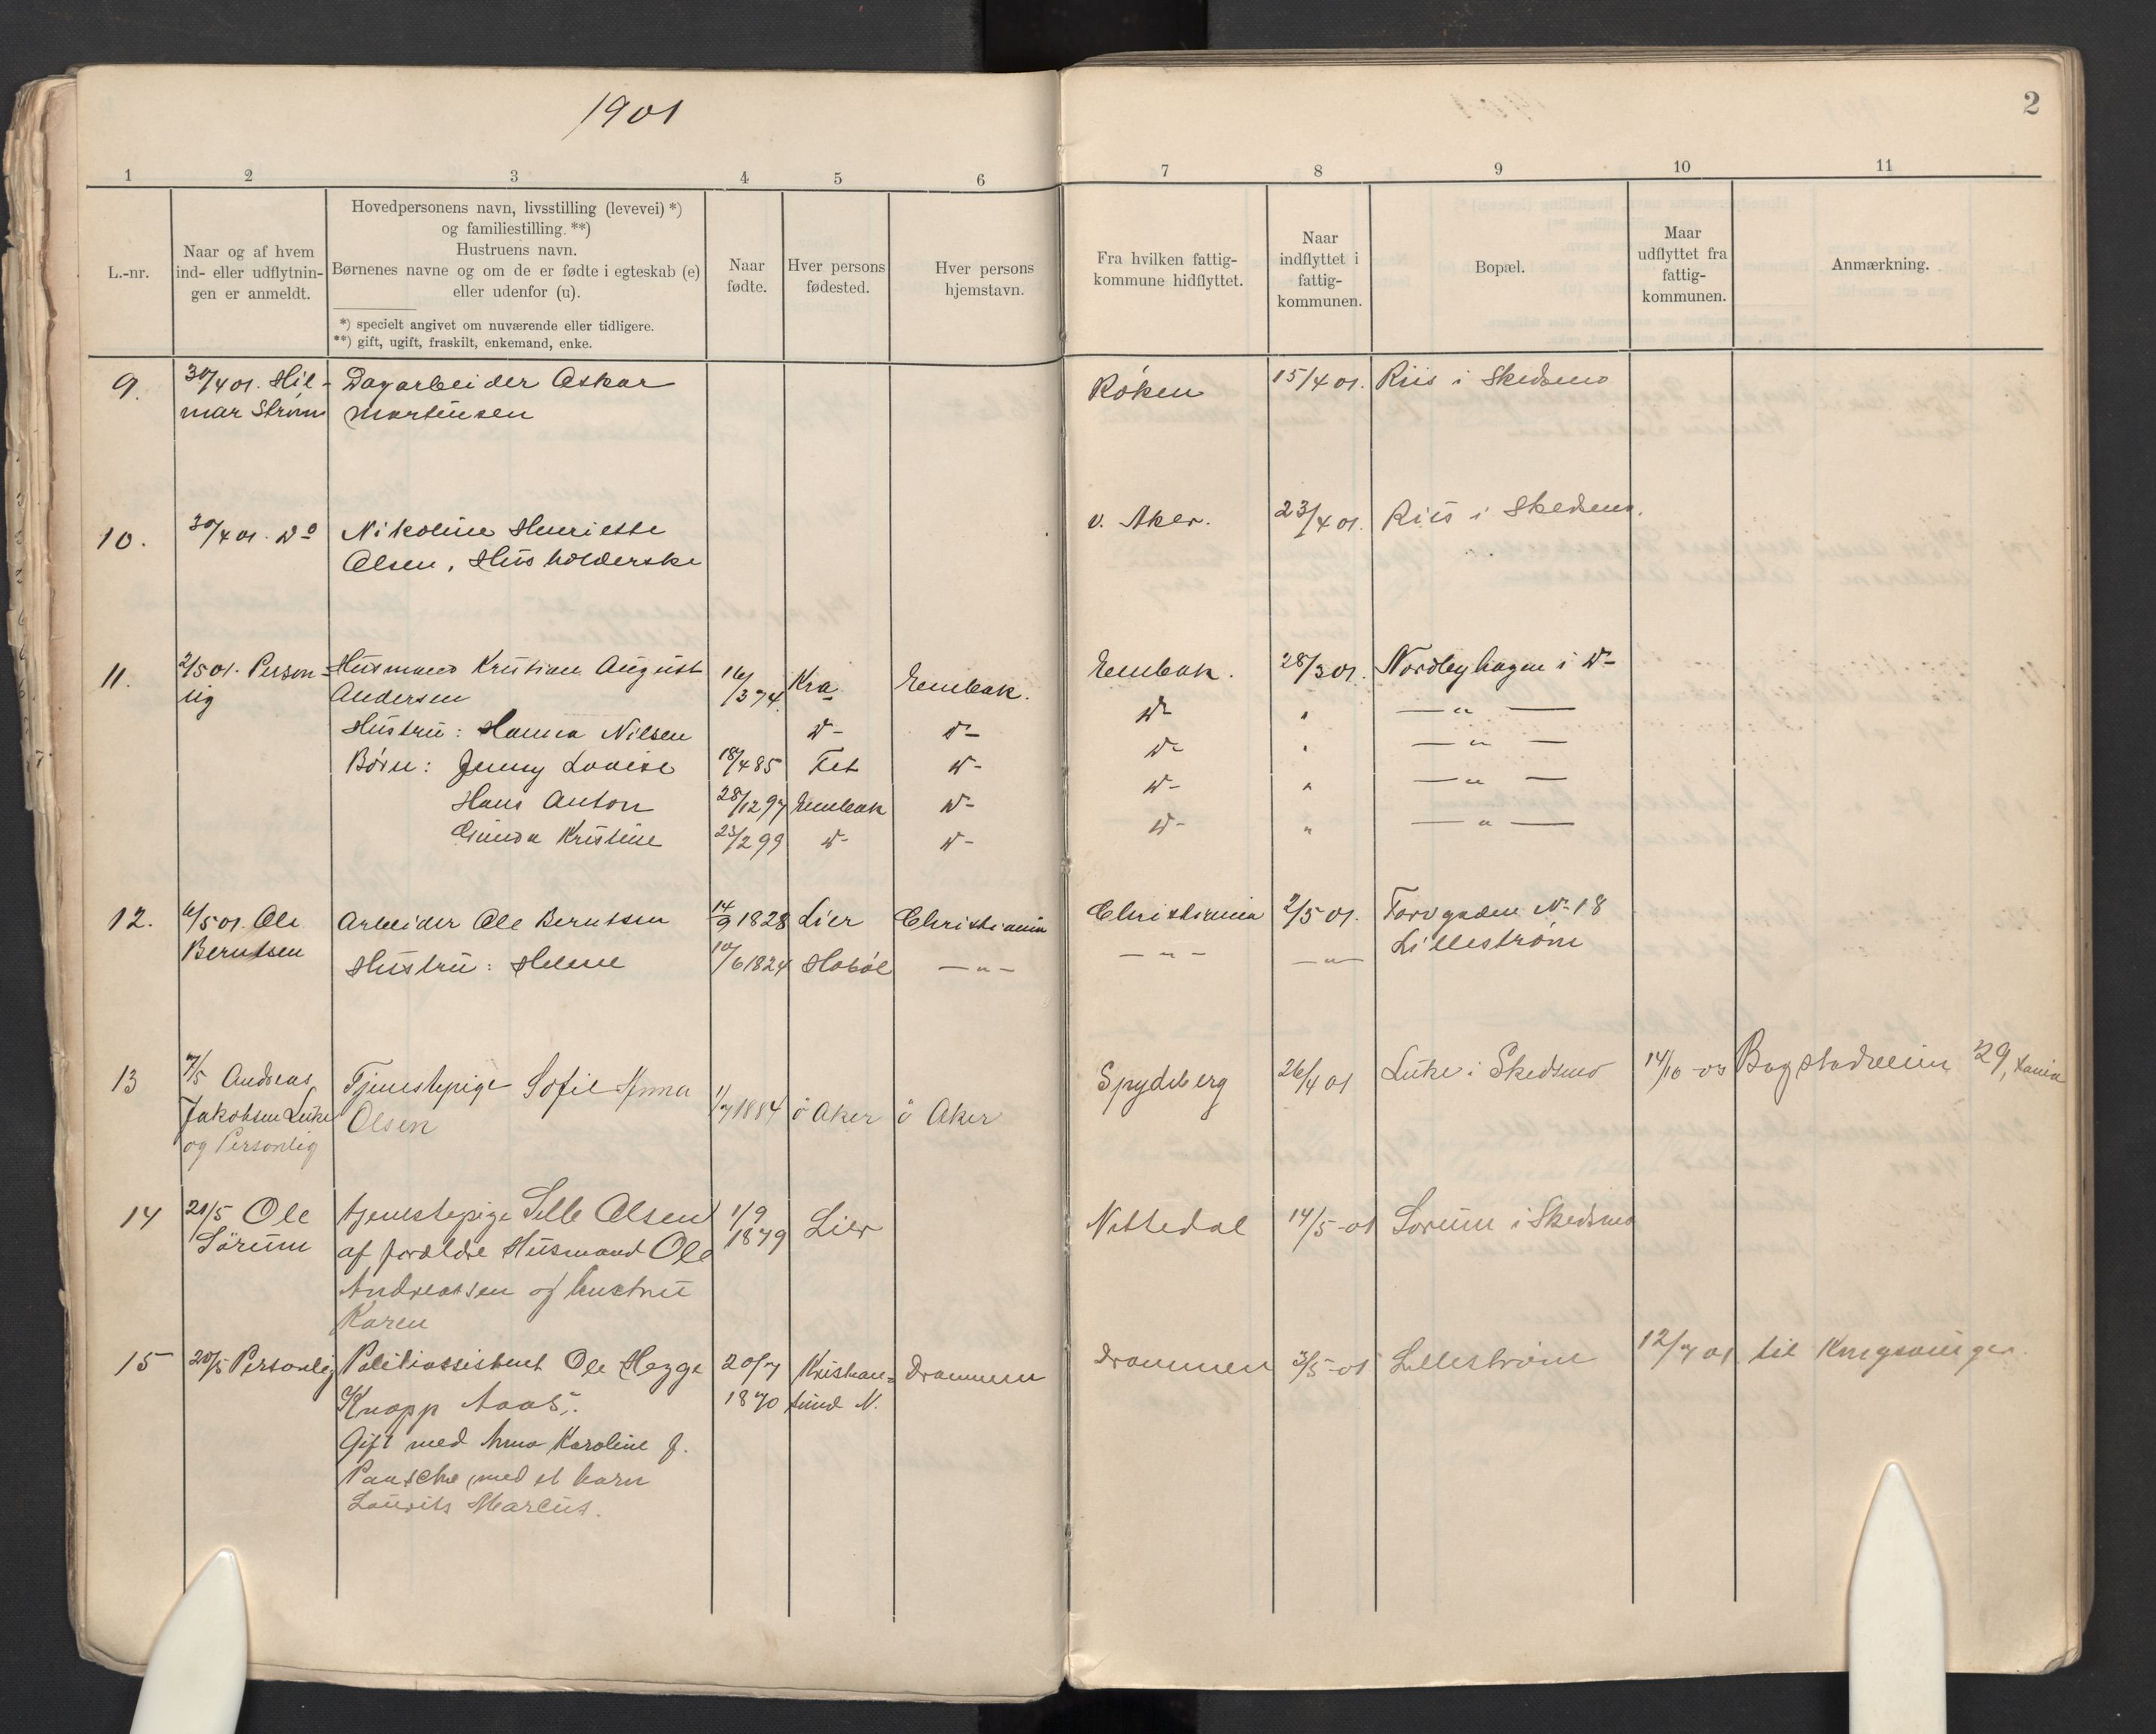 1901
2
1 2 3 4 5 6 7 8 9 10 11
L.-nr.
Naar og af hvem
ind- eller udflytnin-
gen er anmeldt.
Hovedpersonens navn, livsstilling (levevei) *)
og familiestilling. **)
Hustruens navn.
Børnenes navne og om de er fødte i egteskab (e)
eller udenfor (u).
*) specielt angivet om nuværende eller tidligere.
**) gift, ugift, fraskilt, enkemand, enke.
Naar
fødte.
Hver persons
fødested.
Hver persons
hjemstavn.
Fra hvilken fattig-
kommune hidflyttet.
Naar
indflyttet i
fattig-
kommunen.
Bopæl.
Maar
udflyttet fra
fattig-
kommunen.
Anmærkning.
9. 30/4 01. Hil- Dagarbeider Oskar Røken 15/4 01. Riis i Skedsmo
mar Strøm Martinsen
10. 30/4 01. Do Nikoline Henriette v. Aker. 23/4 01. Riis i Skedsmo.
Olsen, Husholderske
11. 2/5 01. Person- Husmand Kristian August 16/3 74. Kra Enebak. Enebak. 28/3 01. Nordbyhagen i D-
lig Andersen
Hustru: Hanna Nilsen D- D- D- " — " —
Børn: Jenny Lovise 18/4 85 Fet D- D- " — " —
Hans Anton 28/12 97 Enebak D- D- " — " —
Gunda Kristine 23/2 99 D- D- D- " — " —
12. 6/5 01. Ole Arbeider Ole Berntsen 14/9 1828 Lier Christiania Christiania 2/5 01. Torvgaden No 18
Berntsen Hustru: Helene 10/6 1824 Hobøl — " — — " — — " — Lillestrøm
13 7/5 Andreas Tjenestepige Sofie Anna 1/7 1884 ö Aker ö Aker Spydeberg 26/4 01 Luke i Skedsmo 14/10-03 Bogstadveien 29, Xania
Jakobsen Luke Olsen
og Personlig
14 21/5 Ole tjenestepige Selle Olsen 1/9 Lier Nittedal 14/5-01 Sørum i Skedsmo
Sörum af forældre Husmand Ole 1879
Andreassen og hustru
Karen
15 20/5 Personlig Politiassistent Ole Hegge 20/7 Kristian- Drammen Drammen 3/5-01 Lillestrøm 12/7 01 til Kongsvinger.
Knapp Aaas. 1870 sund N.
Gift med Anna Karoline f.
Pausche, med et barn
Laurits Marcus.